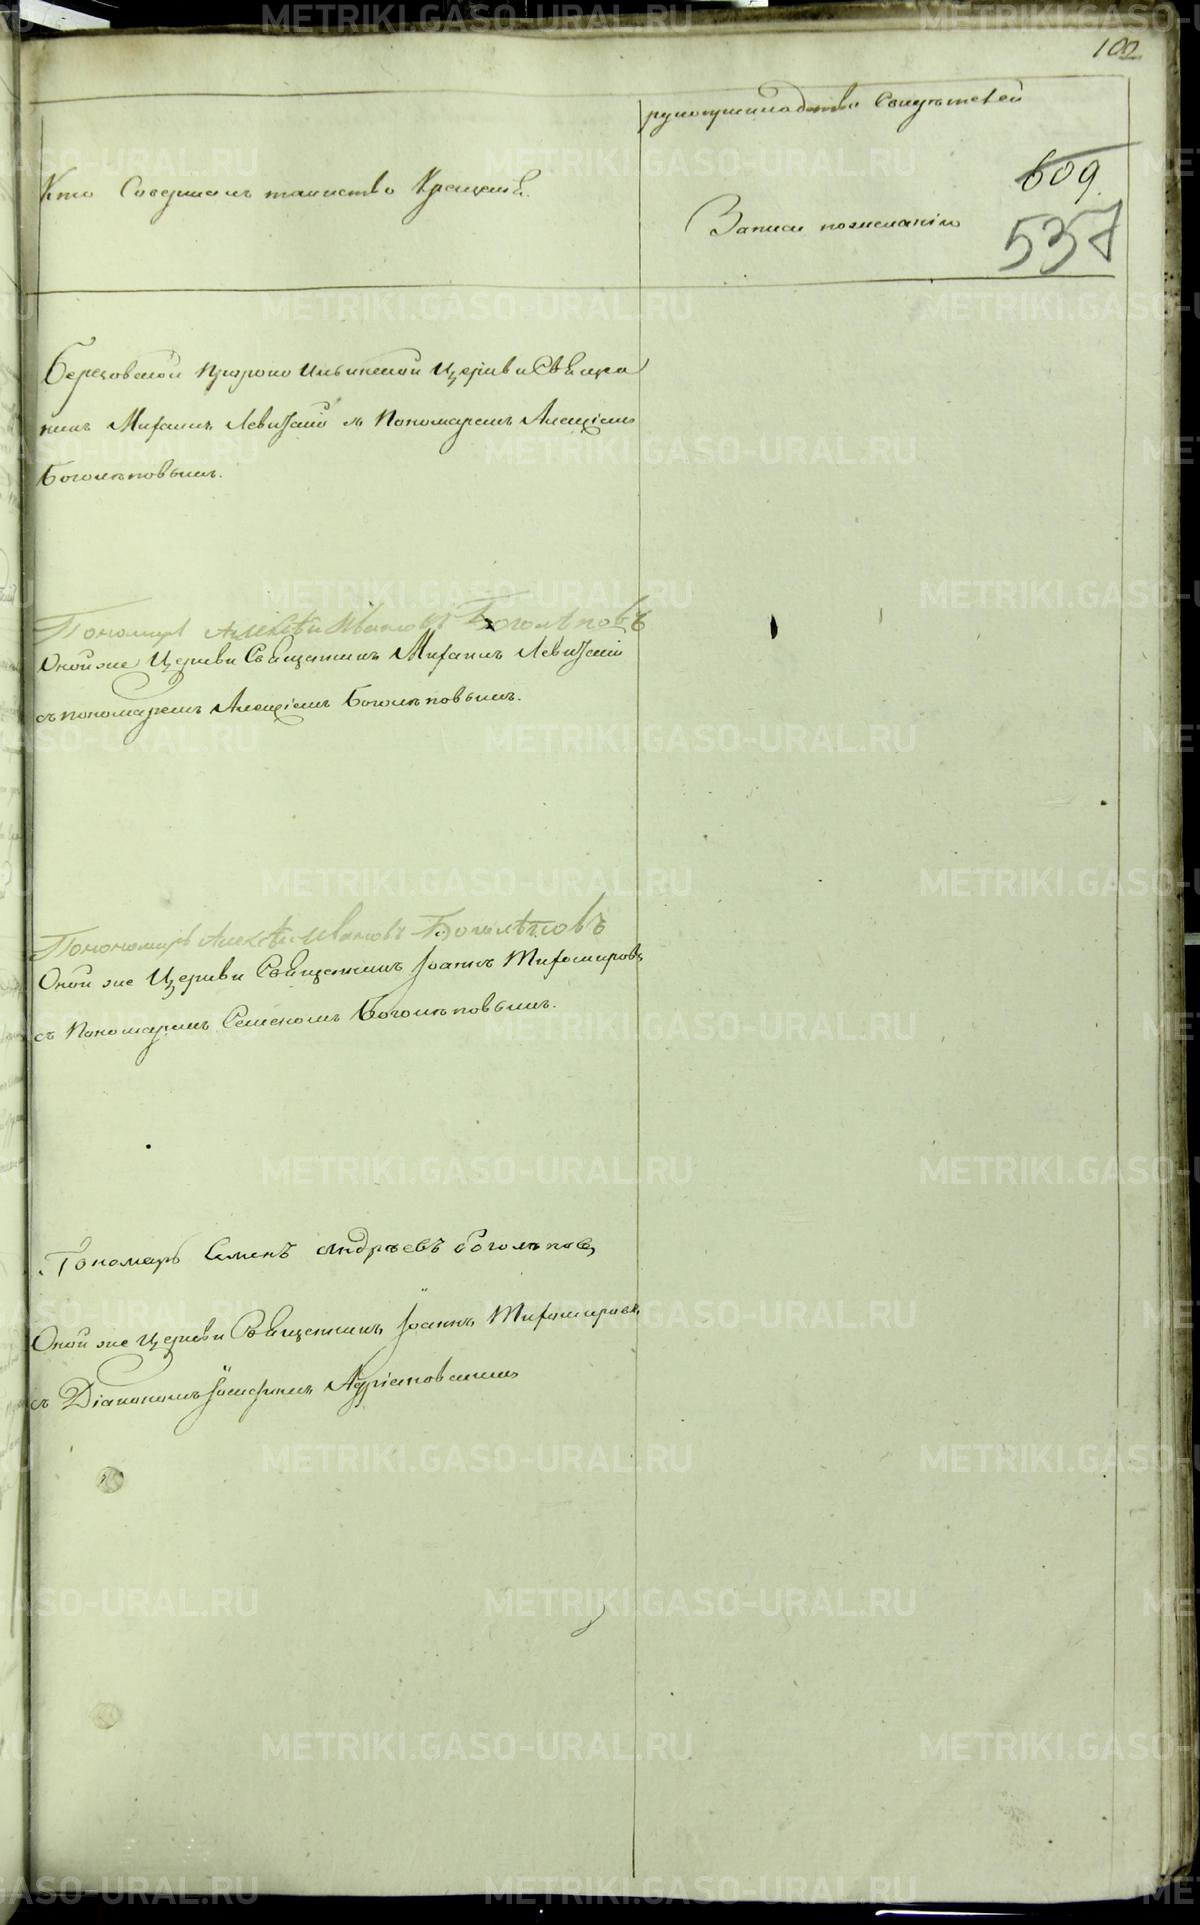 102
рукоприкладство Свидѣтелей
Кто Совершалъ таинство Крещенія
609
Записи по желанію
537
Березовской Пророко Ильинской Церкви Священ
никъ Михаилъ Левитскій съ Пономаремъ Алексіемъ
Боголѣповымъ.
Пономарь Алексѣй Ивановъ Боголѣповъ
Оной же Церкви Священникъ Михаилъ Левитскій
съ пономаремъ Алексіемъ Боголѣповымъ.
Пономарь Алексѣй Ивановъ Боголѣповъ
Оной же Церкви Священникъ Іоаннъ Тихомировъ
съ Пономаремъ Семеномъ Боголѣповымъ.
Пономарь Семенъ Андрѣевъ Боголѣповъ
Оной же Церкви Священникъ Іоаннъ Тихомировъ
съ Діакономъ Адріановскимъ
METRIKI.GASO-URAL.RU